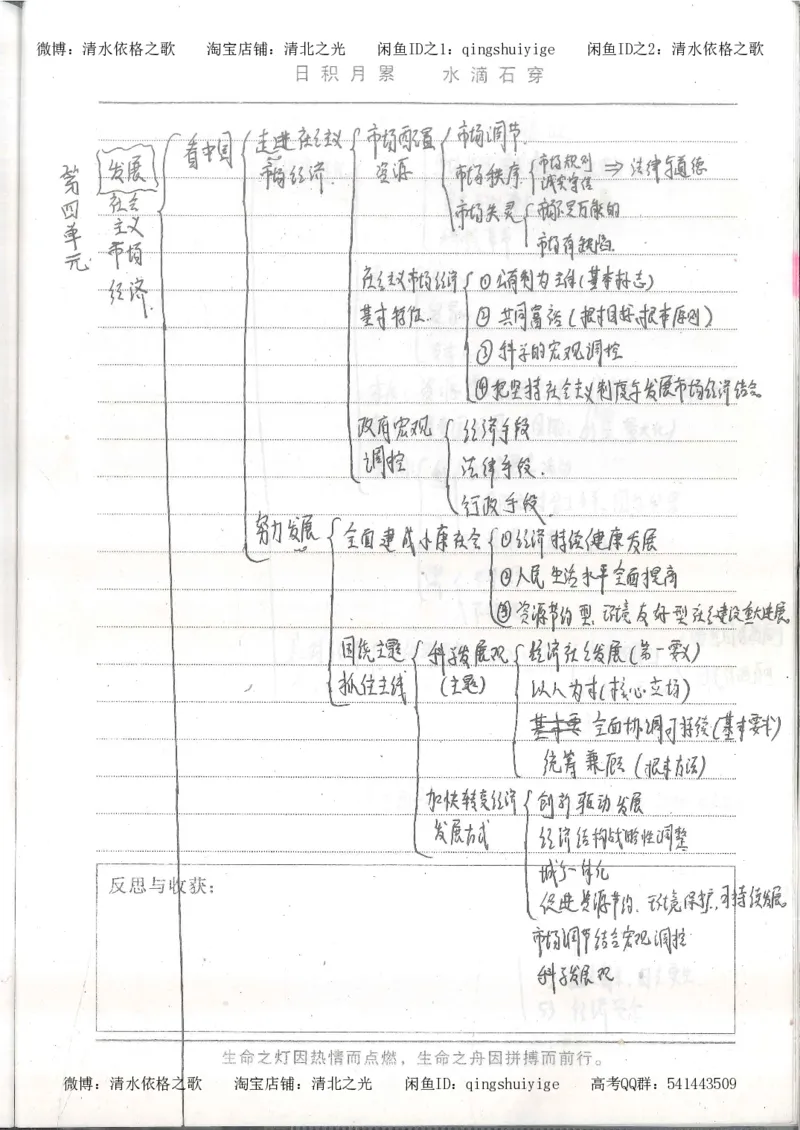 微博：清水依格之歌 淘宝店铺：清北之光 闲鱼ID之1：qingshuiyige 闲鱼ID之2：清水依格之歌
日积月累 水滴石穿
第四单元
发展
社会
主义
市场
经济
看中国
走进社会主义
市场经济
市场配置
资源
市场调节
市场秩序
市场规则
诚实守信
⇒ 法律与道德
市场失灵
市场不是万能的
市场有缺陷
社会主义市场经济
基本特征
①公有制为主体(基本标志)
②共同富裕(根本目标,根本原则)
③科学的宏观调控
④把坚持社会主义制度与发展市场经济结合
政府宏观
调控
经济手段
法律手段
行政手段
努力发展
全面建成小康社会
①经济持续健康发展
②人民生活水平全面提高
③资源节约型、环境友好型社会建设重大进展
围绕主题
抓住主线
科学发展观
(主题)
经济社会发展(第一要义)
以人为本(核心立场)
全面协调可持续(基本要求)
统筹兼顾(根本方法)
加快转变经济
发展方式
创新驱动发展
经济结构战略性调整
城乡一体化
促进资源节约、环境保护,可持续发展
市场调节结合宏观调控
科学发展观
反思与收获：
生命之灯因热情而点燃，生命之舟因拼搏而前行。
微博：清水依格之歌 淘宝店铺：清北之光 闲鱼ID：qingshuiyige 高考QQ群：541443509